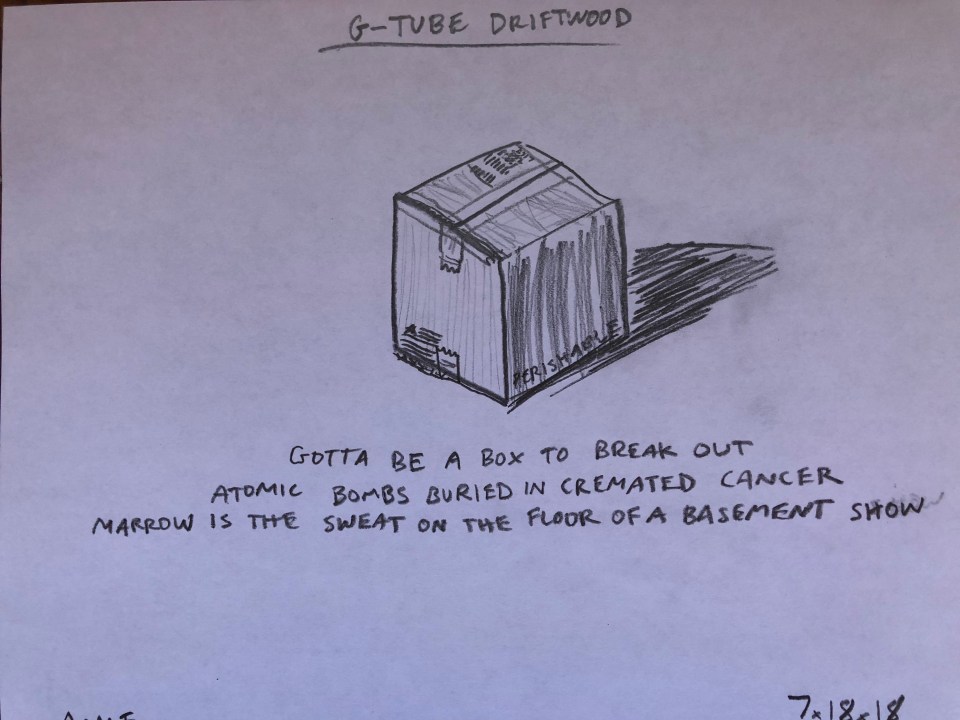 G-TUBE DRIFTWOOD
PERISHABLE
GOTTA BE A BOX TO BREAK OUT
ATOMIC BOMBS BURIED IN CREMATED CANCER
MARROW IS THE SWEAT ON THE FLOOR OF A BASEMENT SHOW
7×18×18